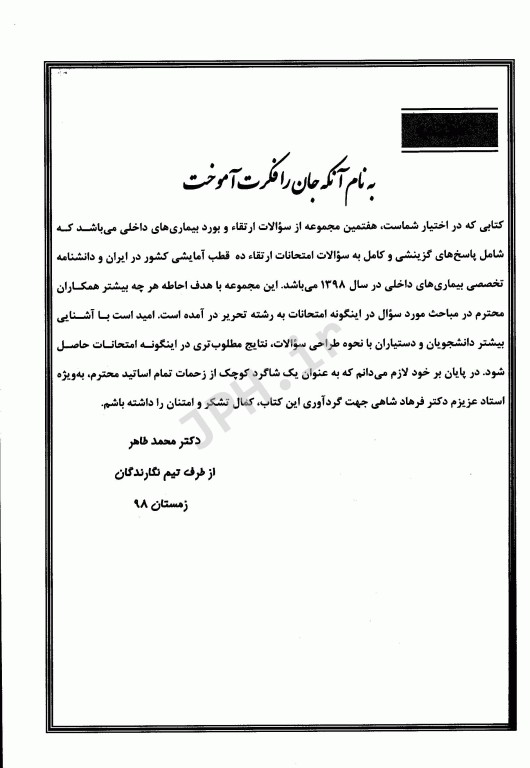 به نام آنکه جان را فکرت آموخت
کتابی که در اختیار شماست، هفتمین مجموعه از سؤالات ارتقاء و بورد بیماری‌های داخلی می‌باشد که
شامل پاسخ‌های گزینشی و کامل به سؤالات امتحانات ارتقاء ده قطب آمایشی کشور در ایران و دانشنامه
تخصصی بیماری‌های داخلی در سال ۱۳۹۸ می‌باشد. این مجموعه با هدف احاطه هر چه بیشتر همکاران
محترم در مباحث مورد سؤال در اینگونه امتحانات به رشته تحریر در آمده است. امید است با آشنایی
بیشتر دانشجویان و دستیاران با نحوه طراحی سؤالات، نتایج مطلوب‌تری در اینگونه امتحانات حاصل
شود. در پایان بر خود لازم می‌دانم که به عنوان یک شاگرد کوچک از زحمات تمام اساتید محترم، به‌ویژه
استاد عزیزم دکتر فرهاد شاهی جهت گردآوری این کتاب، کمال تشکر و امتنان را داشته باشم.
دکتر محمد طاهر
از طرف تیم نگارندگان
زمستان ۹۸
JPH.ir